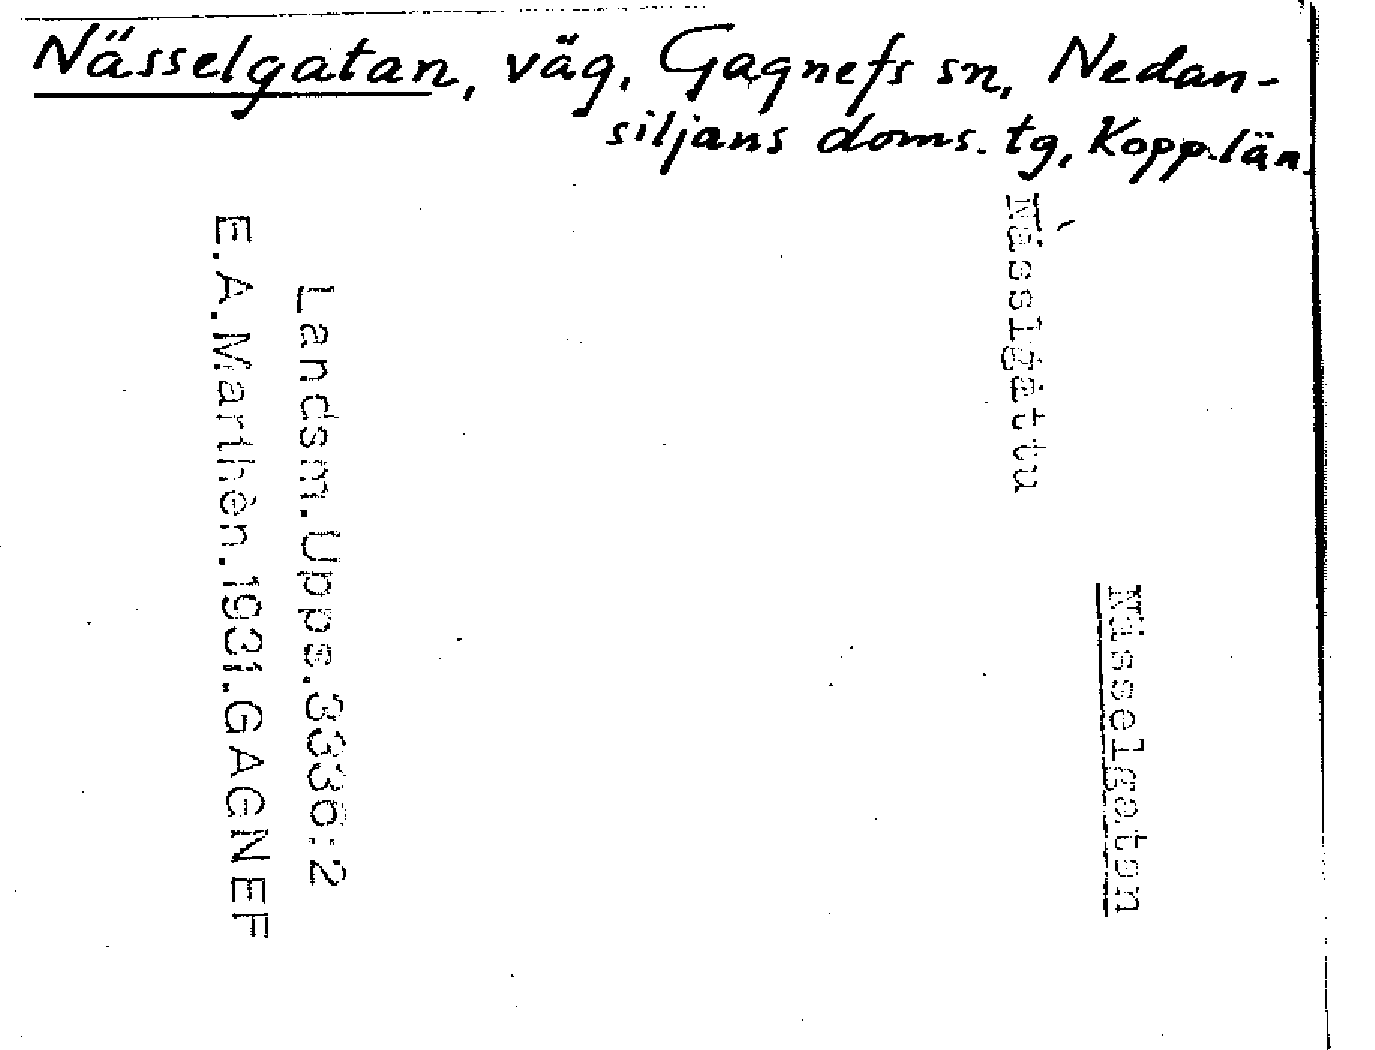 Nässelgatan, väg, Gagnefs sn, Nedan-
siljans doms. tg, Kopp. län.
Nässelgatan
Landsm. Upps. 3336:2
E. A. Marthén. 1931. GAGNEF